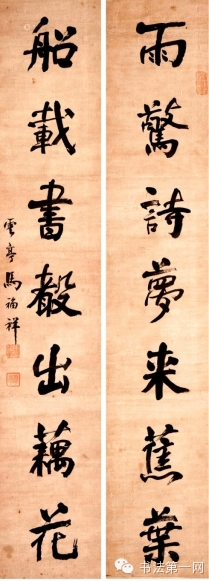 雨驚詩夢来蕉葉
船載書聲出藕花
雲亭馬福祥
书法第一网